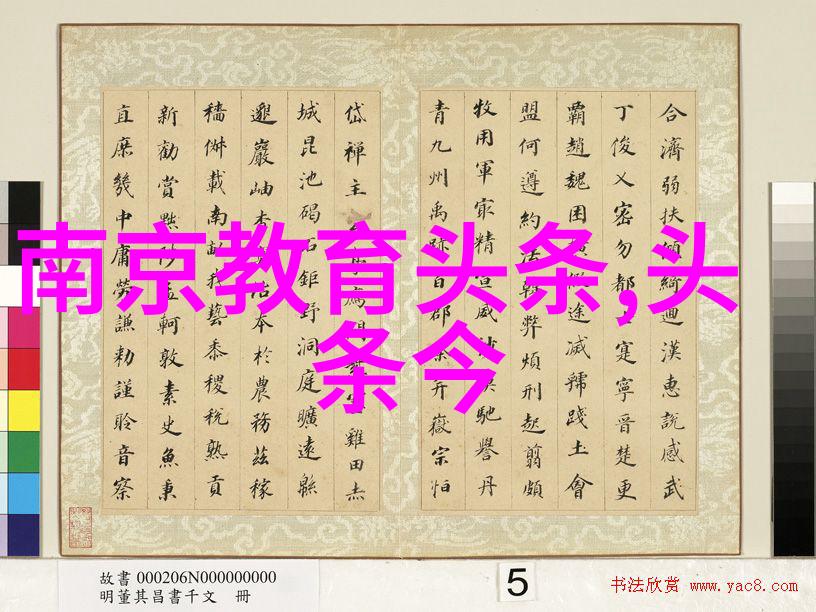 南京教育头条,头
条今
合濟弱扶傾綺迴漢惠說感武
丁俊乂密勿士寔寧晉楚更
霸趙魏困途滅虢踐土會
盟何遵約法韓弊煩刑起翦頗
牧用軍最精宣威沙漠馳譽丹
青九州禹跡百郡秦并嶽宗恒
岱禪主亭鴈門塞雞田赤
城昆池碣石鉅野洞庭曠遠緜
邈巖岫杳治本於農務茲稼
穡俶載南畝我藝黍稷稅熟貢
新勸賞黜陟孟軻敦素史魚秉
直庶幾中庸勞謙勑謹聆音察
故書 000206N000000000
明董其昌書千文 冊
5
书法欣赏 www.yac8.com